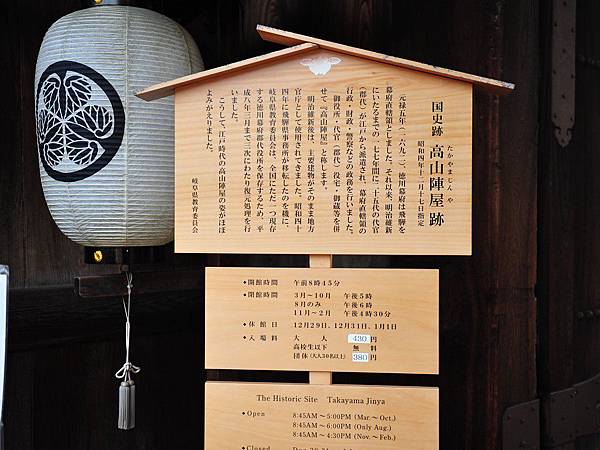 国史跡 高山陣屋跡
たかやまじんやあと
昭和四年十二月十七日指定
元禄五年(一六九二)、徳川幕府は飛騨を
幕府直轄領としました。それ以来、明治維新
にいたるまでの一七七年間に二十五代の代官
(郡代)が江戸から派遣され、幕府直轄領の
行政・財政・警察などの政務を行いました。
御役所・代官(郡代)役宅・御蔵等を併
せて『高山陣屋』と称します。
明治維新後は、主要建物がそのまま地方
官庁として使用されてきました。昭和四十
四年に飛騨県事務所が移転したのを機に、
岐阜県教育委員会は、全国にただ一つ現存
する徳川幕府郡代役所を保存するため、平
成八年三月まで三次にわたり復元処理を行
いました。
こうして、江戸時代の高山陣屋の姿がほぼ
よみがえりました。
岐阜県教育委員会
◆開館時間 午前8時45分
◆閉館時間 3月〜10月 午後5時
8月のみ 午後6時
11月〜2月 午後4時30分
◆休館日 12月29日、12月31日、1月1日
◆入場料 大人 430円
高校生以下 無料
団体(大人30名以上) 380円
The Historic Site Takayama Jinya
◆Open 8:45AM〜5:00PM (Mar.〜Oct.)
8:45AM〜6:00PM (Only Aug.)
8:45AM〜4:30PM (Nov.〜Feb.)
◆Closed